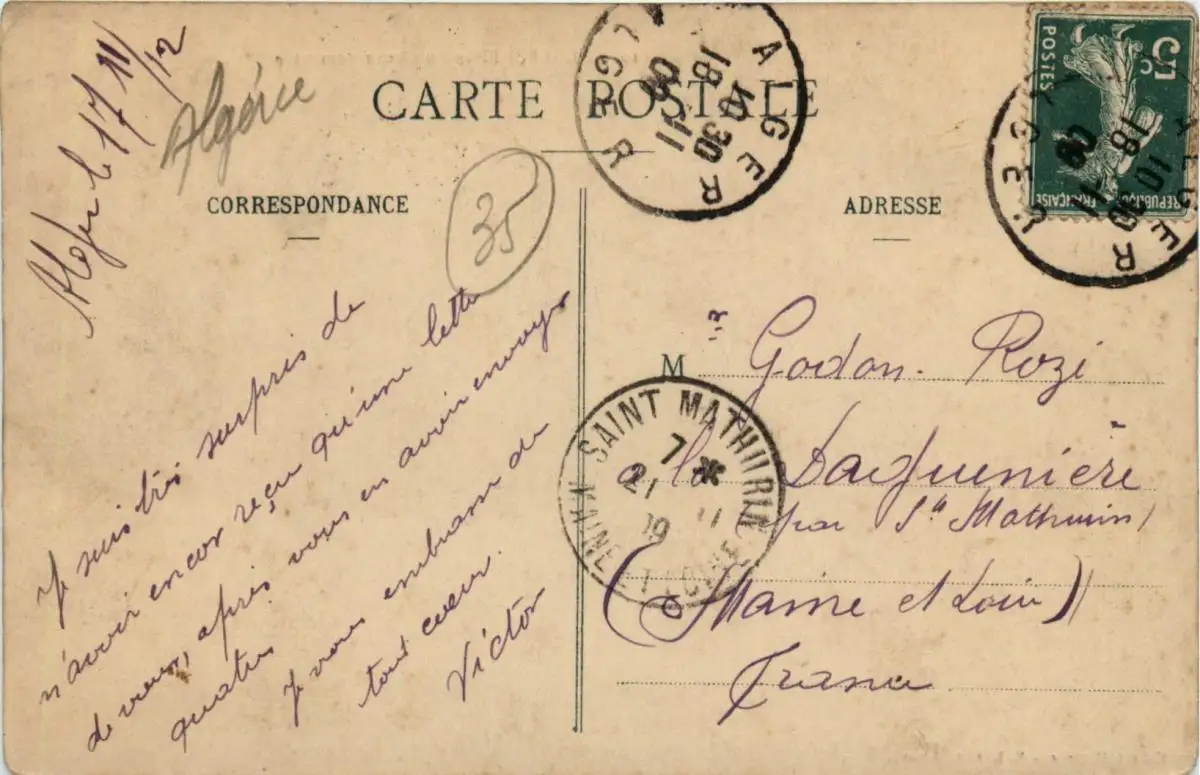 Alger le 17/11/12
Algérie
CARTE POSTALE
35
CORRESPONDANCE
ADRESSE
Je suis très surpris de
n'avoir encor reçu qu'une lettre
de vous, après vous en avoir envoyer
quatre
Je vous embrasse de
tout cœur.
Victor
M
ir Godon Rozi
à la Daguenière
par St Mathurin
(Maine et Loire)
France
ALGER
18
10 30
ALGER
18
10 30
5c
POSTES
REPUBLIQUE FRANÇAISE
SAINT MATHURIN
7 *
21 11
19
MAINE ET LOIRE